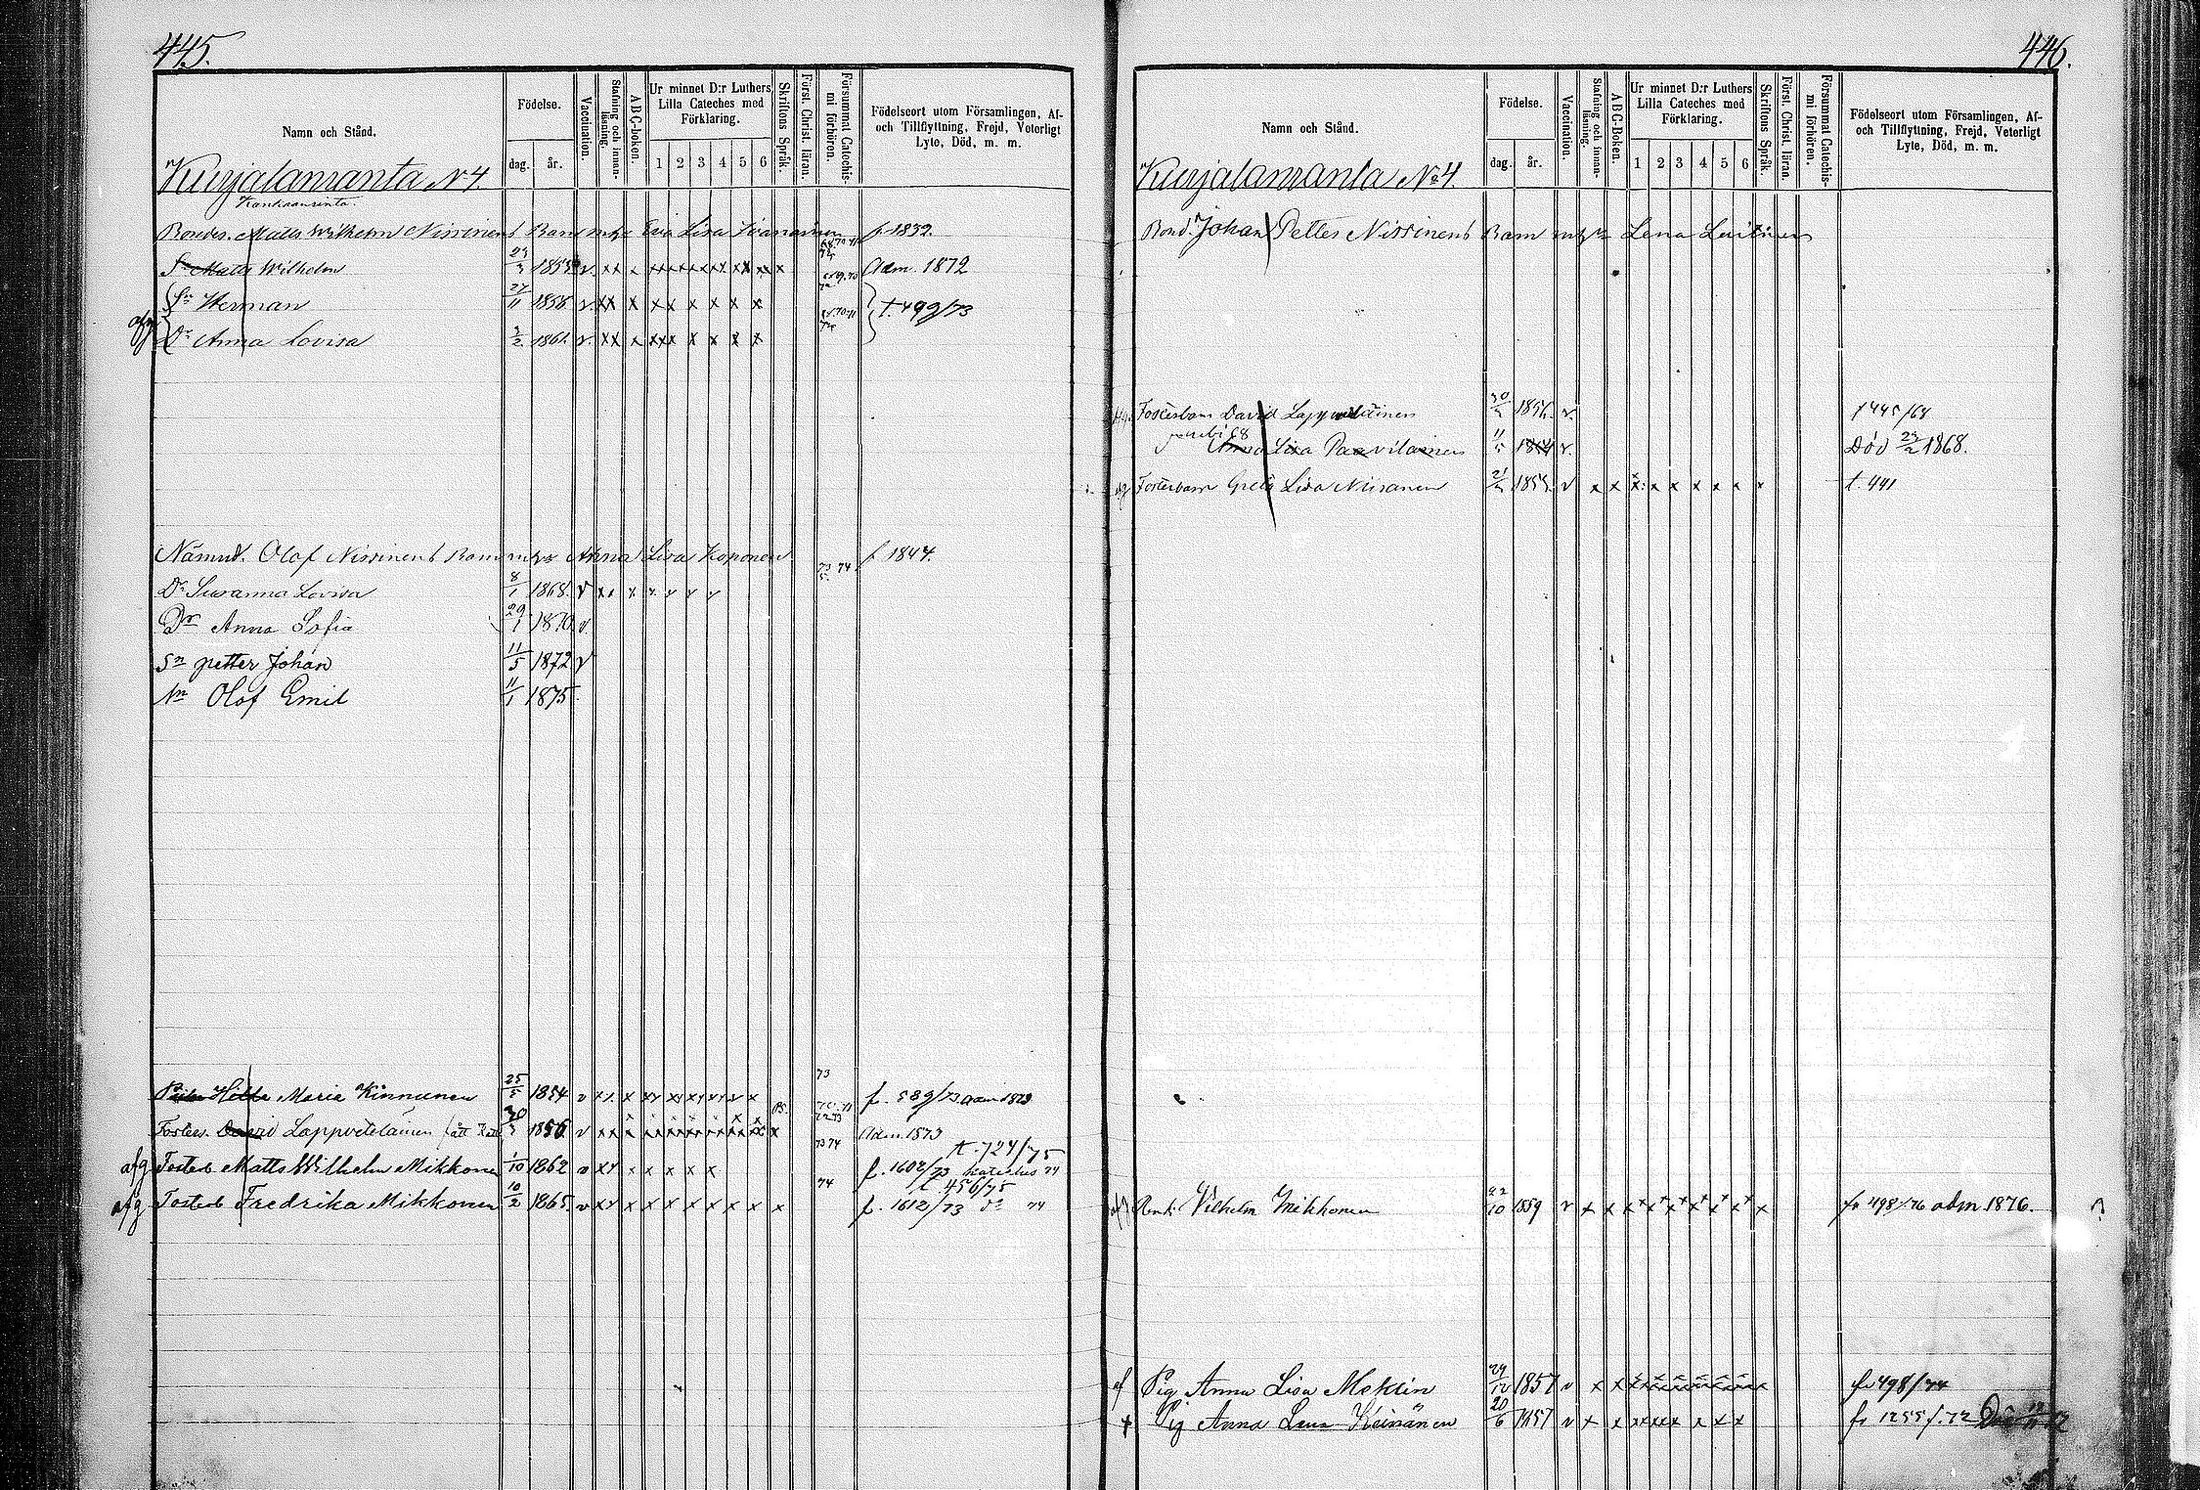 445.
Namn och Stånd.
Födelse.
dag.
år.
Vaccination.
Stafning och innan-
läsning.
ABC-boken.
Ur minnet D:r Luthers
Lilla Cateches med
Förklaring.
1 2 3 4 5 6
Skriftens Språk.
Först. Christ. läran.
Försummat Catechis-
mi förhören.
Födelseort utom Församlingen, Af-
och Tillflyttning, Frejd, Veterligt
Lyte, Död, m. m.
Kurjalanranta N 4.
Bondes. Matts Wilhelm Nissinens Barn m h Eva Lisa f. 1832.
Sn Matts Wilhelm 1853 v. x x x x x x x x x x x Adm. 1872
Sn Herman 27/11 1858 v. x x x x x x x x x t. 499/73
afg Dr Anna Lovisa 2/2 1861 v. x x x x x x x x x x
Olof Nissinens Barn m h Anna Lisa Koponen 73 74 f 1844.
Dr Susanna Lovisa 8/1 1868. v x x x x x x x
Dr Anna Sofia 29/1 1870 v.
Sn petter Johan 11/5 1872 v
Sn Olof Emil 11/1 1875.
73
Marie Kinnunen 25/5 1854 v x x x x x x x x x f. 589/73 adm 1873
Fosters. David Lappvetelainen 30/3 1856 v x x x x x x x x x x Adm. 1873
73 74 t. 724/75
afg Fosterb Matts Wilhelm Mikkonen 1/10 1862 v x x x x x x x f. 1602/73
74 t. 456/75
afg Fosterb Fredrika Mikkonen 10/2 1865. v x x x x x x x x x x f. 1612/73 do 74
446.
Namn och Stånd.
Födelse.
dag.
år.
Vaccination.
Stafning och innan-
läsning.
ABC-Boken.
Ur minnet D:r Luthers
Lilla Cateches med
Förklaring.
1 2 3 4 5 6
Skriftens Språk.
Först. Christ. läran.
Försummat Catechis-
mi förhören.
Födelseort utom Församlingen, Af-
och Tillflyttning, Frejd, Veterligt
Lyte, Död, m. m.
Kurjalanranta No 4.
Bond. Johan Petter Nissinens Barn m h Lena
Fosterbarn David 30/3 1856. v.
Lisa Paavilainen 11/5 1864 v. Död 1868.
afg Fosterbarn Greta Lisa Niiranen 1855. v x x x x x x x x x t. 441
afg Wilhelm Mikkonen 22/10 1859 v x x x x x x x x x fr 498/76 adm 1876.
af Pig. Anna Lisa Meklin 29/12 1857 v x x x x x x x x x fr 498/74
Pig Anna Lena Keinänen 20/6 1857 v x x x x x x x x fr 1255/.72 Död